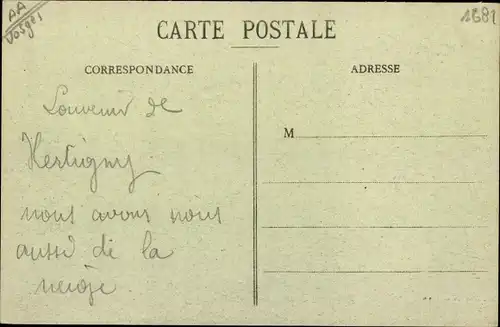 AA
Vosges
1681
CARTE POSTALE
CORRESPONDANCE
ADRESSE
Souvenir de
Hertigny
nous avons nous
aussi de la
neige
M